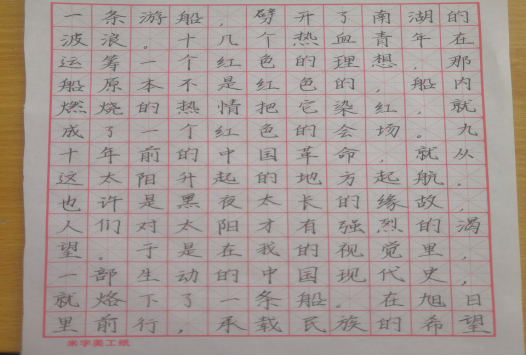 一条游船，劈开了南湖的
波浪。十几个热血青年在
运筹一个红色的理想，那
船原本不是红色的，船内
燃烧的热情把它染红，就
成了一个红色的会场。九
十年前的中国革命，就从
这太阳升起的地方起航．
也许是黑夜太长的缘故，
人们对太阳才有强烈的渴
望。于是在我的视觉里，
一部生动的中国现代史，
就烙下了一条船。在旭日
里前行，承载民族的希望
米字美工纸